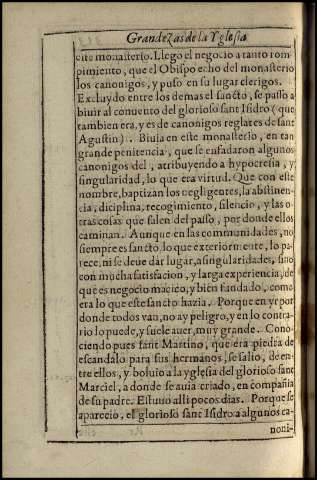 Grandezas de la Yglesia
este monasterio. Llego el negocio a tanto rom-
pimiento, que el Obispo echo del monasterio
los canonigos, y puso en su lugar clerigos.
Excluydo entre los demas el sancto, se passo a
biuir al conuento del glorioso sant Isidro (que
tambien era, y es de canonigos reglares de sant
Agustin). Biuia en este monasterio, en tan
grande penitencia, que se enfadaron algunos
canonigos del, atribuyendo a hypocresia, y
singularidad, lo que era virtud. Que con este
nombre, baptizan los negligentes, la abstinen-
cia, diciplina, recogimiento, silencio, y las o-
tras cosas que salen del passo, por donde ellos
caminan. Aunque en las communidades, no
siempre es sancto, lo que exteriormente, lo pa-
rece, ni se deue dar lugar, a singularidades, sino
con mucha satisfacion, y larga experiencia, de
que es negocio maciço, y bien fundado, como
era lo que este sancto hazia. Porque en yr por
donde todos van, no ay peligro, y en lo contra-
rio lo puede, y suele auer, muy grande. Cono-
ciendo pues sant Martino, que era piedra de
escandalo para sus hermanos, se salio, de en-
tre ellos, y boluio a la yglesia del glorioso sant
Marciel, a donde se auia criado, en compañia
de su padre. Estuuo alli pocos dias. Porque se
aparecio, el glorioso sant Isidro a algunos ca-
noni-